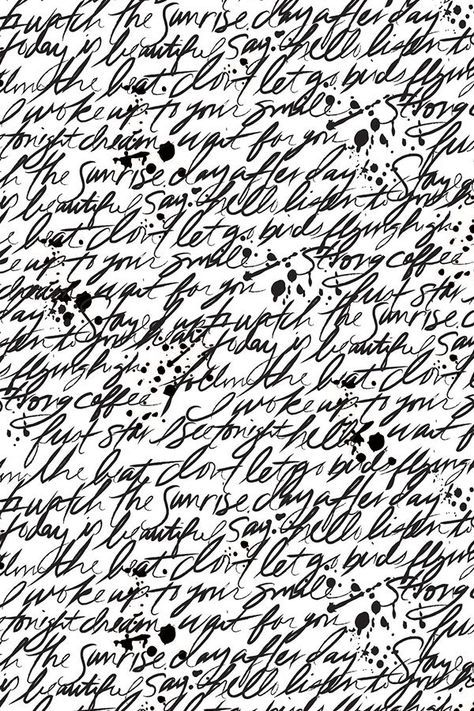 watch the Sunrise day after day
today is beautiful Say hello listen to
the beat. don't let go birds flying
I woke up to your smile Strong
tonight dream wait for you
the Sunrise day after day Stay
is beautiful Say hello listen to
the beat. don't let go birds flying high
up to your smile Strong coffee
wait for you first star
day Stay up watch the Sunrise
listen to today is beautiful Say
flying high the beat. don't
Strong coffee I woke up to your
first star I see tonight wait
the beat don't let go birds flying
watch the Sunrise day after day
today is beautiful Say hello listen to
the beat. don't let go birds flying
I woke up to your smile Strong
tonight dream wait for you
the Sunrise day after day Stay
is beautiful Say hello listen to